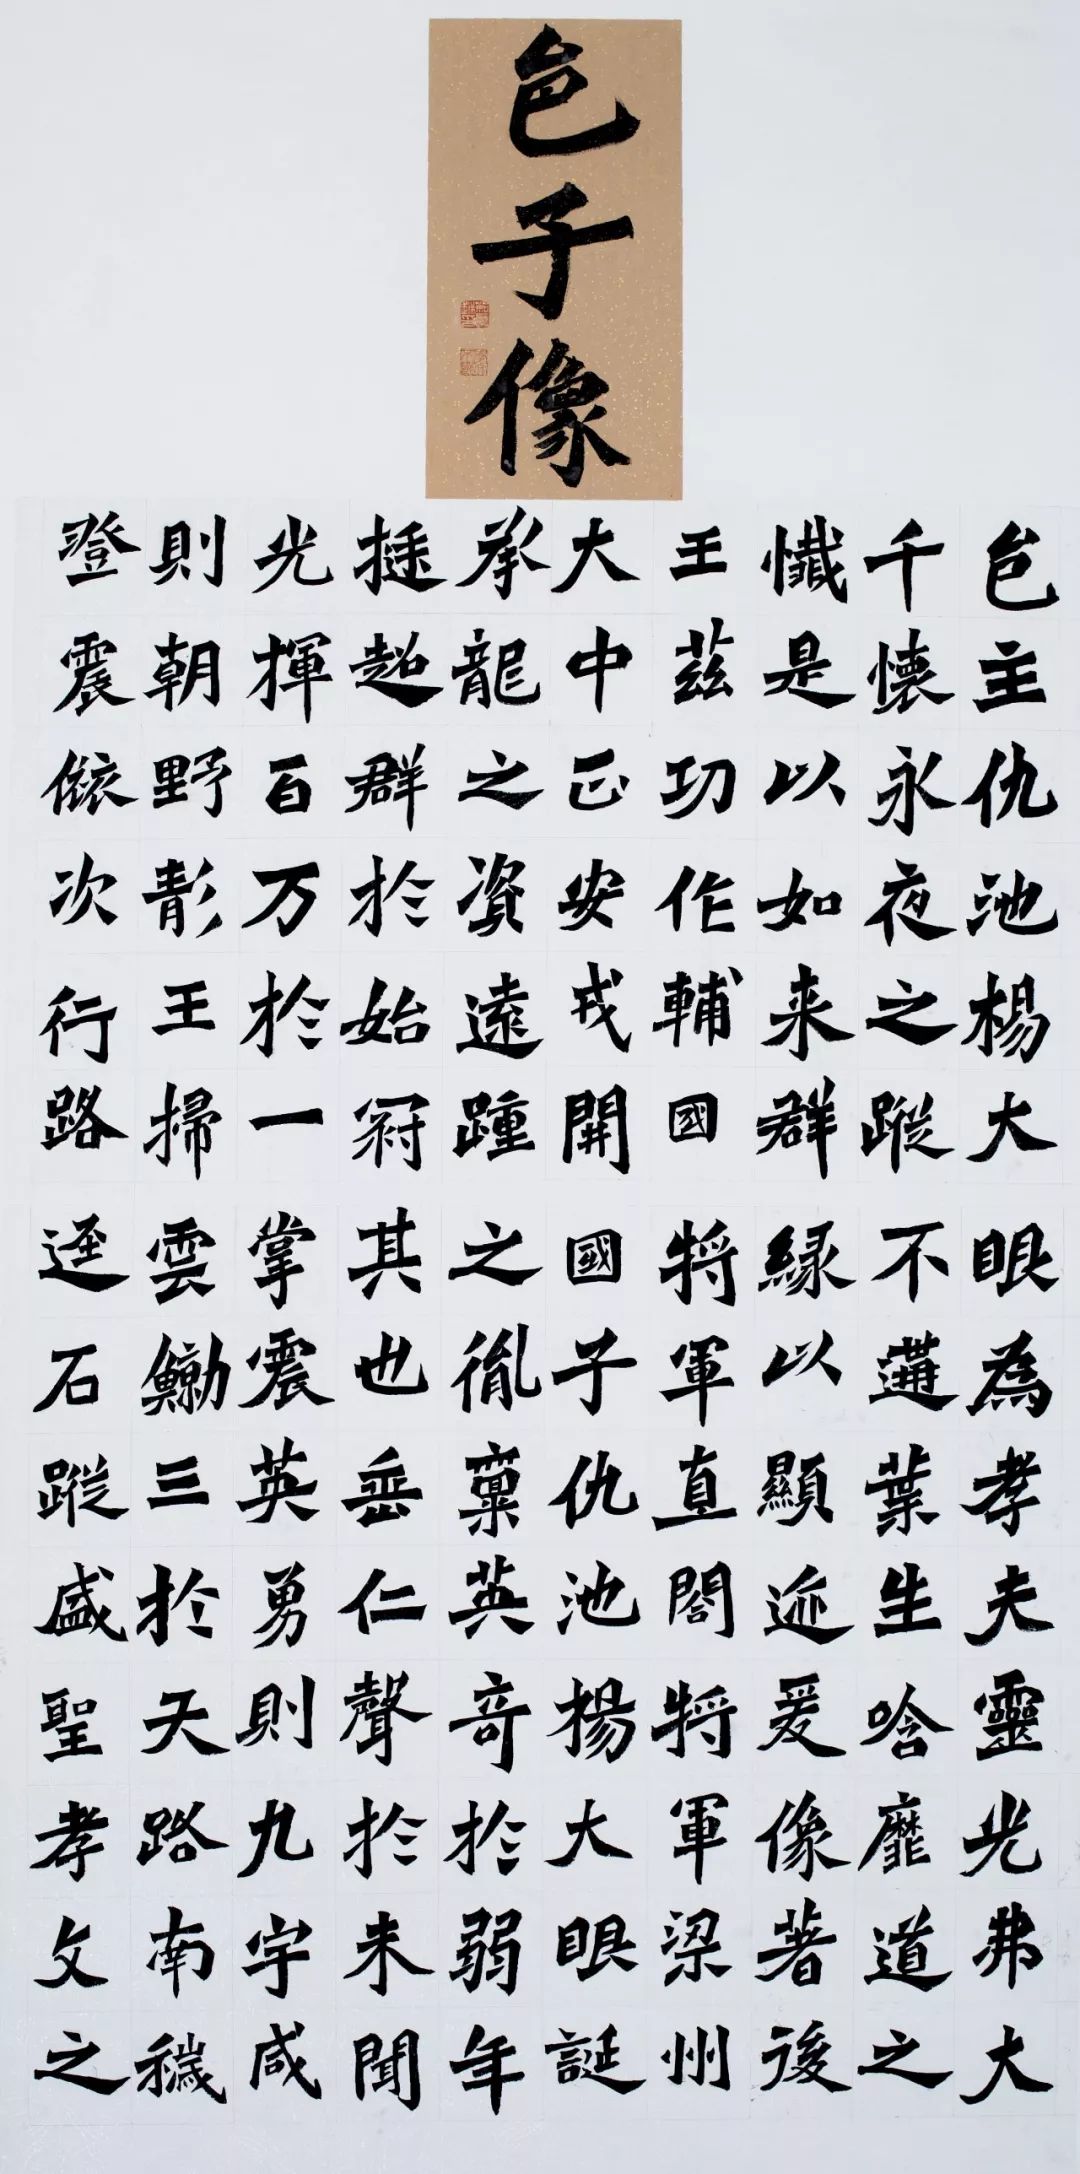 邑子像
邑主仇池楊大眼為孝夫靈光弗大
千懷永夜之蹤不遘葉生唅靡道之
懺是以如来群緣以顯迹爰像著後
王茲功作輔國將軍直閤將軍梁州
大中正安戎開國子仇池楊大眼誕
承龍之資遠踵之胤稟英奇於弱年
挺超群於始冠其也垂仁聲於未聞
光揮百万於一掌震英勇則九宇咸
則朝野王掃雲三於天路南穢
澄震次行路逕石蹤盛聖孝文之